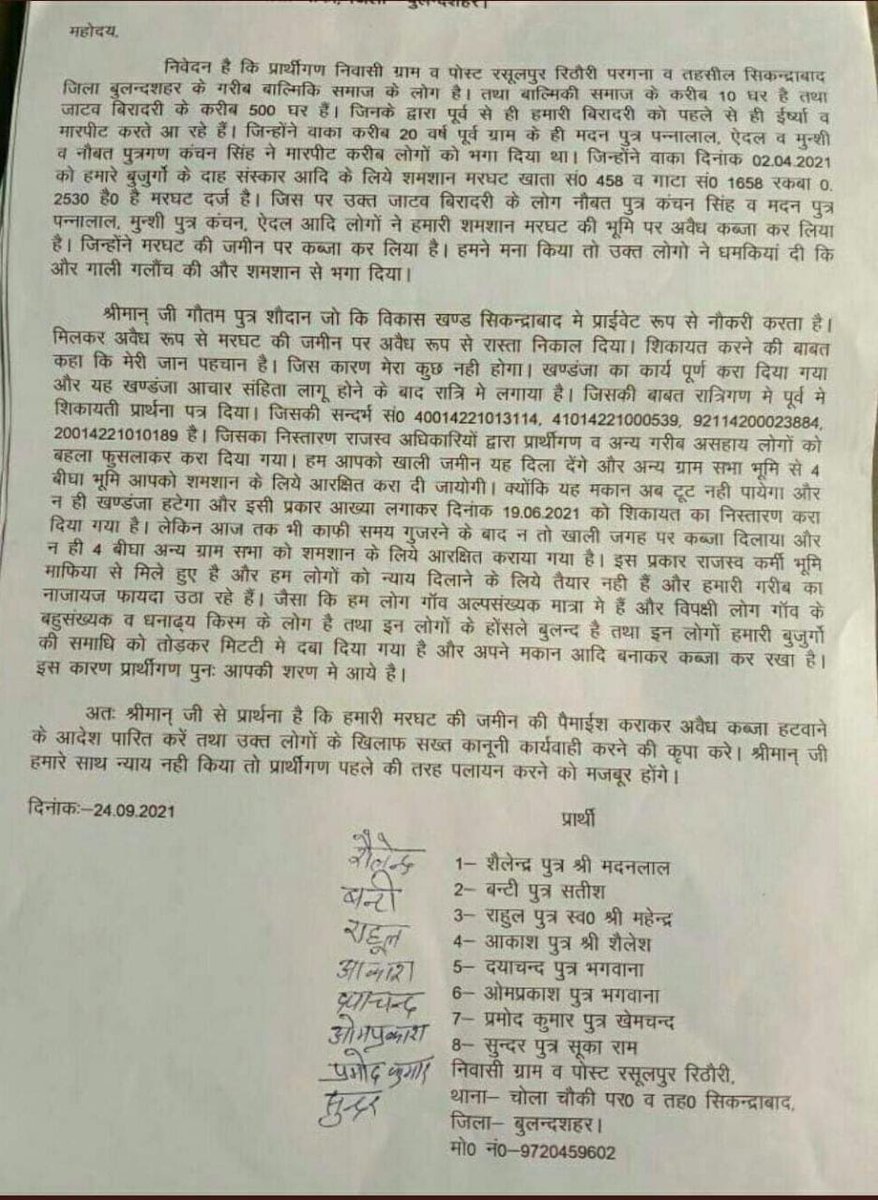 बुलन्दशहर।
महोदय,
निवेदन है कि प्रार्थीगण निवासी ग्राम व पोस्ट रसूलपुर रिठौरी परगना व तहसील सिकन्द्राबाद
जिला बुलन्दशहर के गरीब बाल्मिकि समाज के लोग है। तथा बाल्मिकी समाज के करीब 10 घर है तथा
जाटव बिरादरी के करीब 500 घर हैं। जिनके द्वारा पूर्व से ही हमारी बिरादरी को पहले से ही ईर्ष्या व
मारपीट करते आ रहे हैं। जिन्होंने वाका करीब 20 वर्ष पूर्व ग्राम के ही मदन पुत्र पन्नालाल, ऐदल व मुन्शी
व नौबत पुत्रगण कंचन सिंह ने मारपीट करीब लोगों को भगा दिया था। जिन्होंने वाका दिनांक 02.04.2021
को हमारे बुजुर्गो के दाह संस्कार आदि के लिये शमशान मरघट खाता सं0 458 व गाटा सं0 1658 रकबा 0.
2530 है0 है मरघट दर्ज है। जिस पर उक्त जाटव बिरादरी के लोग नौबत पुत्र कंचन सिंह व मदन पुत्र
पन्नालाल, मुन्शी पुत्र कंचन, ऐदल आदि लोगों ने हमारी शमशान मरघट की भूमि पर अवैध कब्जा कर लिया
है। जिन्होंने मरघट की जमीन पर कब्जा कर लिया है। हमने मना किया तो उक्त लोगो ने धमकियां दी कि
और गाली गलौंच की और शमशान से भगा दिया।
श्रीमान् जी गौतम पुत्र शौदान जो कि विकास खण्ड सिकन्द्राबाद मे प्राईवेट रूप से नौकरी करता है।
मिलकर अवैध रूप से मरघट की जमीन पर अवैध रूप से रास्ता निकाल दिया। शिकायत करने की बाबत
कहा कि मेरी जान पहचान है। जिस कारण मेरा कुछ नही होगा। खण्डंजा का कार्य पूर्ण करा दिया गया
और यह खण्डंजा आचार संहिता लागू होने के बाद रात्रि मे लगाया है। जिसकी बाबत रात्रिगण मे पूर्व मे
शिकायती प्रार्थना पत्र दिया। जिसकी सन्दर्भ सं0 40014221013114, 41014221000539, 92114200023884,
20014221010189 है। जिसका निस्तारण राजस्व अधिकारियों द्वारा प्रार्थीगण व अन्य गरीब असहाय लोगों को
बहला फुसलाकर करा दिया गया। हम आपको खाली जमीन यह दिला देंगे और अन्य ग्राम सभा भूमि से 4
बीघा भूमि आपको शमशान के लिये आरक्षित करा दी जायोगी। क्योंकि यह मकान अब टूट नही पायेगा और
न ही खण्डंजा हटेगा और इसी प्रकार आख्या लगाकर दिनांक 19.06.2021 को शिकायत का निस्तारण करा
दिया गया है। लेकिन आज तक भी काफी समय गुजरने के बाद न तो खाली जगह पर कब्जा दिलाया और
न ही 4 बीघा अन्य ग्राम सभा को शमशान के लिये आरक्षित कराया गया है। इस प्रकार राजस्व कर्मी भूमि
माफिया से मिले हुए है और हम लोगों को न्याय दिलाने के लिये तैयार नही हैं और हमारी गरीब का
नाजायज फायदा उठा रहे हैं। जैसा कि हम लोग गॉव अल्पसंख्यक मात्रा मे हैं और विपक्षी लोग गॉव के
बहुसंख्यक व धनाढ्य किस्म के लोग है तथा इन लोगों के होंसले बुलन्द है तथा इन लोगों हमारी बुजुर्गो
की समाधि को तोड़कर मिटटी मे दबा दिया गया है और अपने मकान आदि बनाकर कब्जा कर रखा है।
इस कारण प्रार्थीगण पुनः आपकी शरण मे आये है।
अतः श्रीमान् जी से प्रार्थना है कि हमारी मरघट की जमीन की पैमाईश कराकर अवैध कब्जा हटवाने
के आदेश पारित करें तथा उक्त लोगों के खिलाफ सख्त कानूनी कार्यवाही करने की कृपा करे। श्रीमान् जी
हमारे साथ न्याय नही किया तो प्रार्थीगण पहले की तरह पलायन करने को मजबूर होंगे।
दिनांकः–24.09.2021
प्रार्थी
शैलेन्द्र 1– शैलेन्द्र पुत्र श्री मदनलाल
बन्टी 2– बन्टी पुत्र सतीश
राहूल 3– राहुल पुत्र स्व0 श्री महेन्द्र
आकाश 4– आकाश पुत्र श्री शैलेश
दयाचन्द 5– दयाचन्द पुत्र भगवाना
ओमप्रकाश 6– ओमप्रकाश पुत्र भगवाना
प्रमोद कुमार 7– प्रमोद कुमार पुत्र खेमचन्द
सुन्दर 8– सुन्दर पुत्र सूका राम
निवासी ग्राम व पोस्ट रसूलपुर रिठौरी,
थाना– चोला चौकी पर0 व तह0 सिकन्द्राबाद,
जिला– बुलन्दशहर।
मो0 नं0–9720459602